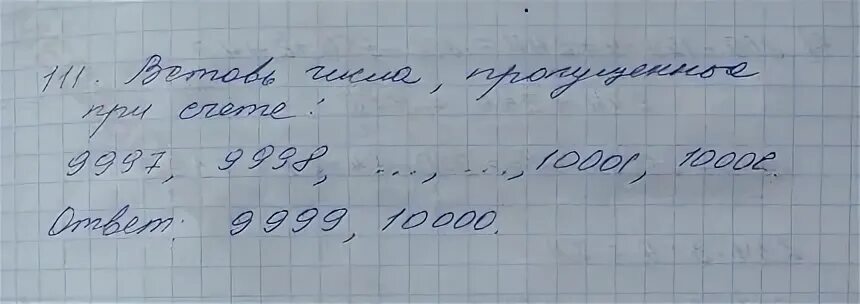 111. Вставь числа, пропущенные
при счете:
9997, 9998, ..., ..., 10001, 10002.
Ответ: 9999, 10000.